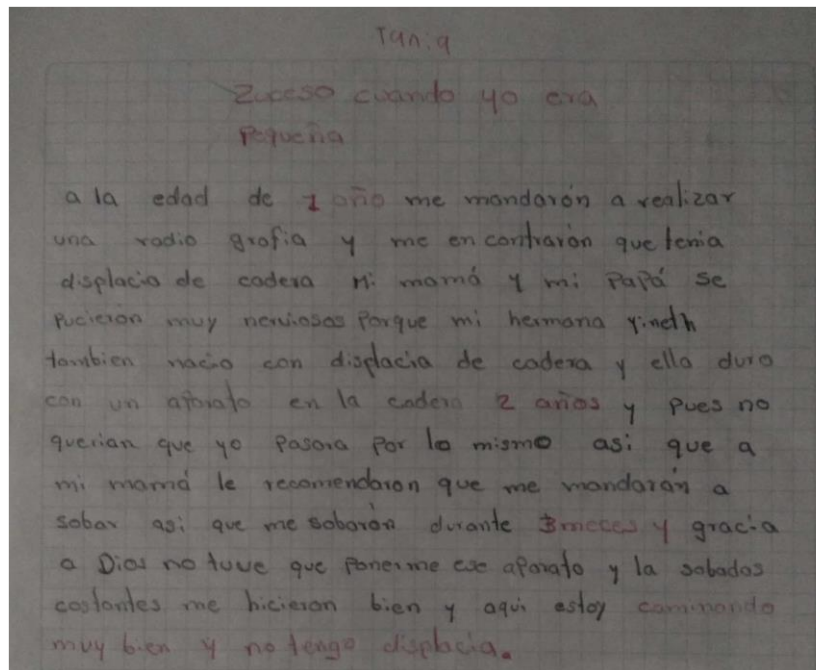 Tania
Zuceso cuando yo era
Pequeña
a la edad de 1 año me mandarón a realizar
una radio grafia y me en contrarón que tenia
displacia de cadera Mi mamá y mi Papá se
pucieron muy nerviosos Porque mi hermana Yineth
tambien nacio con displacia de cadera y ella duro
con un aparato en la cadera 2 años y pues no
querian que yo Pasara Por lo mismo asi que a
mi mamá le recomendaron que me mandarán a
sobar asi que me sobarón durante 3 meces y gracia
a Dios no tuve que Ponerme ese aparato y la sobadas
costantes me hicieron bien y aqui estoy caminando
muy bien y no tengo displacia.